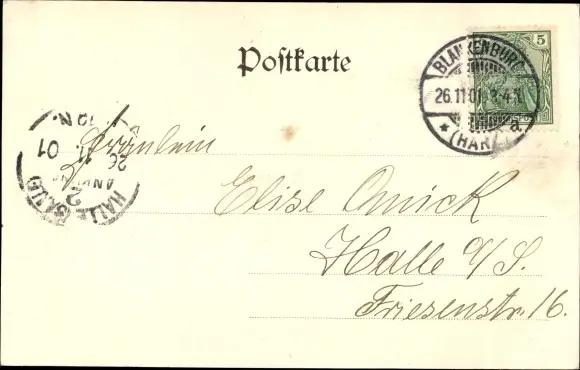 Postkarte
5
BLANKENBURG
26.11.01. 3-4N.
* (HARZ) a
HALLE (SAALE)
2
26
11
01
Fräulein
Elise
Halle a/S.
Friesenstr. 16.